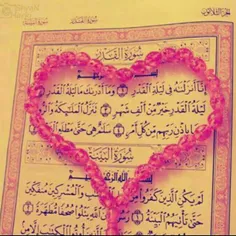 الجزء الثلاثون
سُورَةُ القَدْرِ
سُورَةُ القَدْرِ
إِنَّا أَنزَلْنَٰهُ فِى لَيْلَةِ ٱلْقَدْرِ ① وَمَآ أَدْرَىٰكَ مَا لَيْلَةُ ٱلْقَدْرِ
لَيْلَةُ ٱلْقَدْرِ خَيْرٌ مِّنْ أَلْفِ شَهْرٍ ③ تَنَزَّلُ ٱلْمَلَٰٓئِكَةُ وَٱلرُّوحُ
بِإِذْنِ رَبِّهِم مِّن كُلِّ أَمْرٍ ④ سَلَٰمٌ هِىَ حَتَّىٰ مَطْلَعِ
سُورَةُ البَيِّنَةِ
لَمْ يَكُنِ ٱلَّذِينَ كَفَرُوا۟ مِنْ وَٱلْمُشْرِكِينَ مُنفَكِّينَ
حَتَّىٰ تَأْتِيَهُمُ ٱلْبَيِّنَةُ ① رَسُولٌ مِّنَ ٱللَّهِ يَتْلُوا۟ صُحُفًا مُّطَهَّرَةً
ٱلَّذِينَ أُوتُوا۟ ٱلْكِتَٰبَ إِلَّا مِنۢ